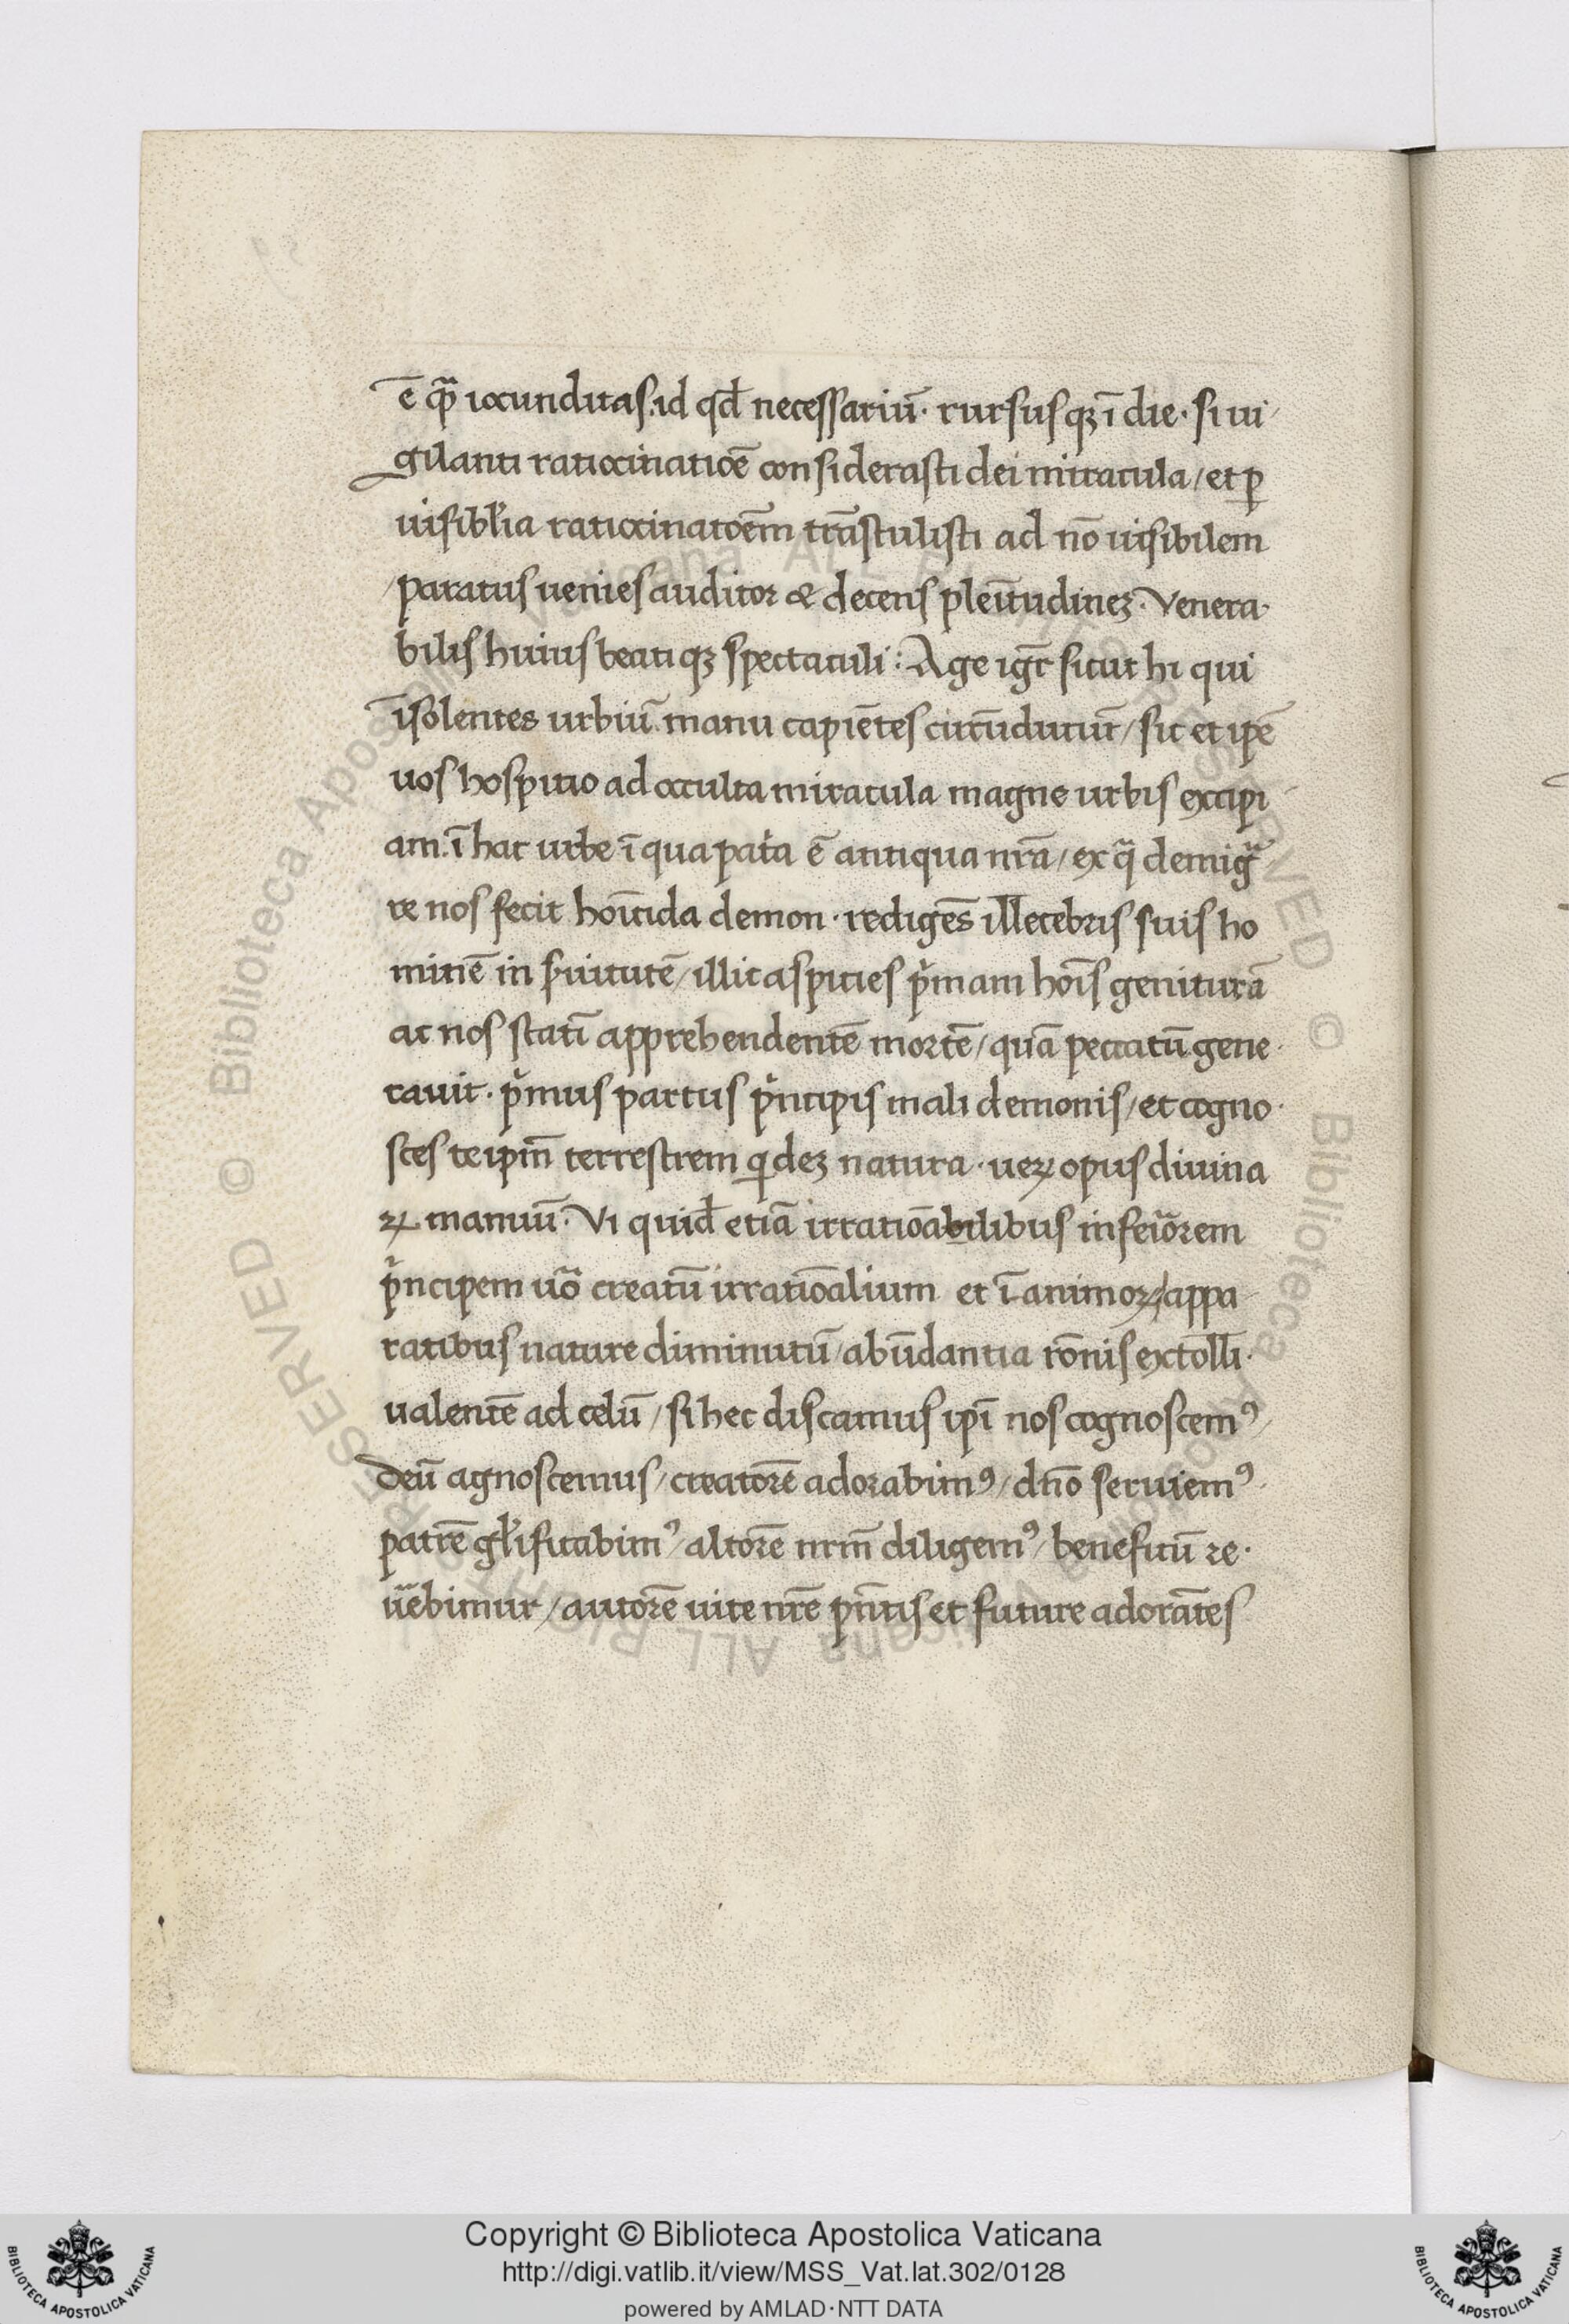 ē qͣ iocunditas. id qd̄ necessariū. rursusqꝫ ī die. si ui
gilanti ratiocinatiōe considerasti dei miracula / et ꝑ
uisibl̓ia ratiocinatōēm trāstulisti ad nō uisibilem
paratus uenies auditor & decens pleītudineꝫ. Venera
bilis huius beatiqꝫ spectaculi: Age igr̄ sicut hi qui
īsolentes urbiū manu capiētes circūducūt / sic et ip̄e
uos hospitio ad occulta miracula magne urbis excipi
am. ī hac urbe ī qua pat̓a ē antiqua nr̄a / ex qͣ demigͣ
re nos fecit hoīcida demon. redigēs illecebris suis ho
minē in s̓uitutē / illic aspicies pͥmam hoīs geniturā
ac nos statī apprehendentē mortē / quā peccatū gene
rauit. pͥmus partus pͥncipis mali demonis / et cogno
sces teip̄m terrestrem qͥdeꝫ natura. ueꝝ opus diuina
ꝝ manuū. Vi quid̄ etiā irratiōabilibus inferiorem
pͥncipem uͦo creatū irratiōalium et ī animoꝝ / appa
ratibus nature diminutū / abūdantia rōnis extolli
ualentē ad celū / si hec discamus ip̄i nos cognoscemꝰ
deū agnoscemus / creatorē adorabimꝰ / dn̄o seruiemꝰ
patrē gl̓ificabimꝰ / altorē nr̄m diligemꝰ / beneficū re
u̓ebimur / autorē uite nr̄e pn̄tis et future adorātes
Copyright © Biblioteca Apostolica Vaticana
http://digi.vatlib.it/view/MSS_Vat.lat.302/0128
powered by AMLAD·NTT DATA